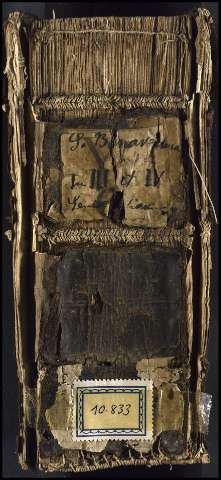 S. Bonaventura
In III et IV
10.833